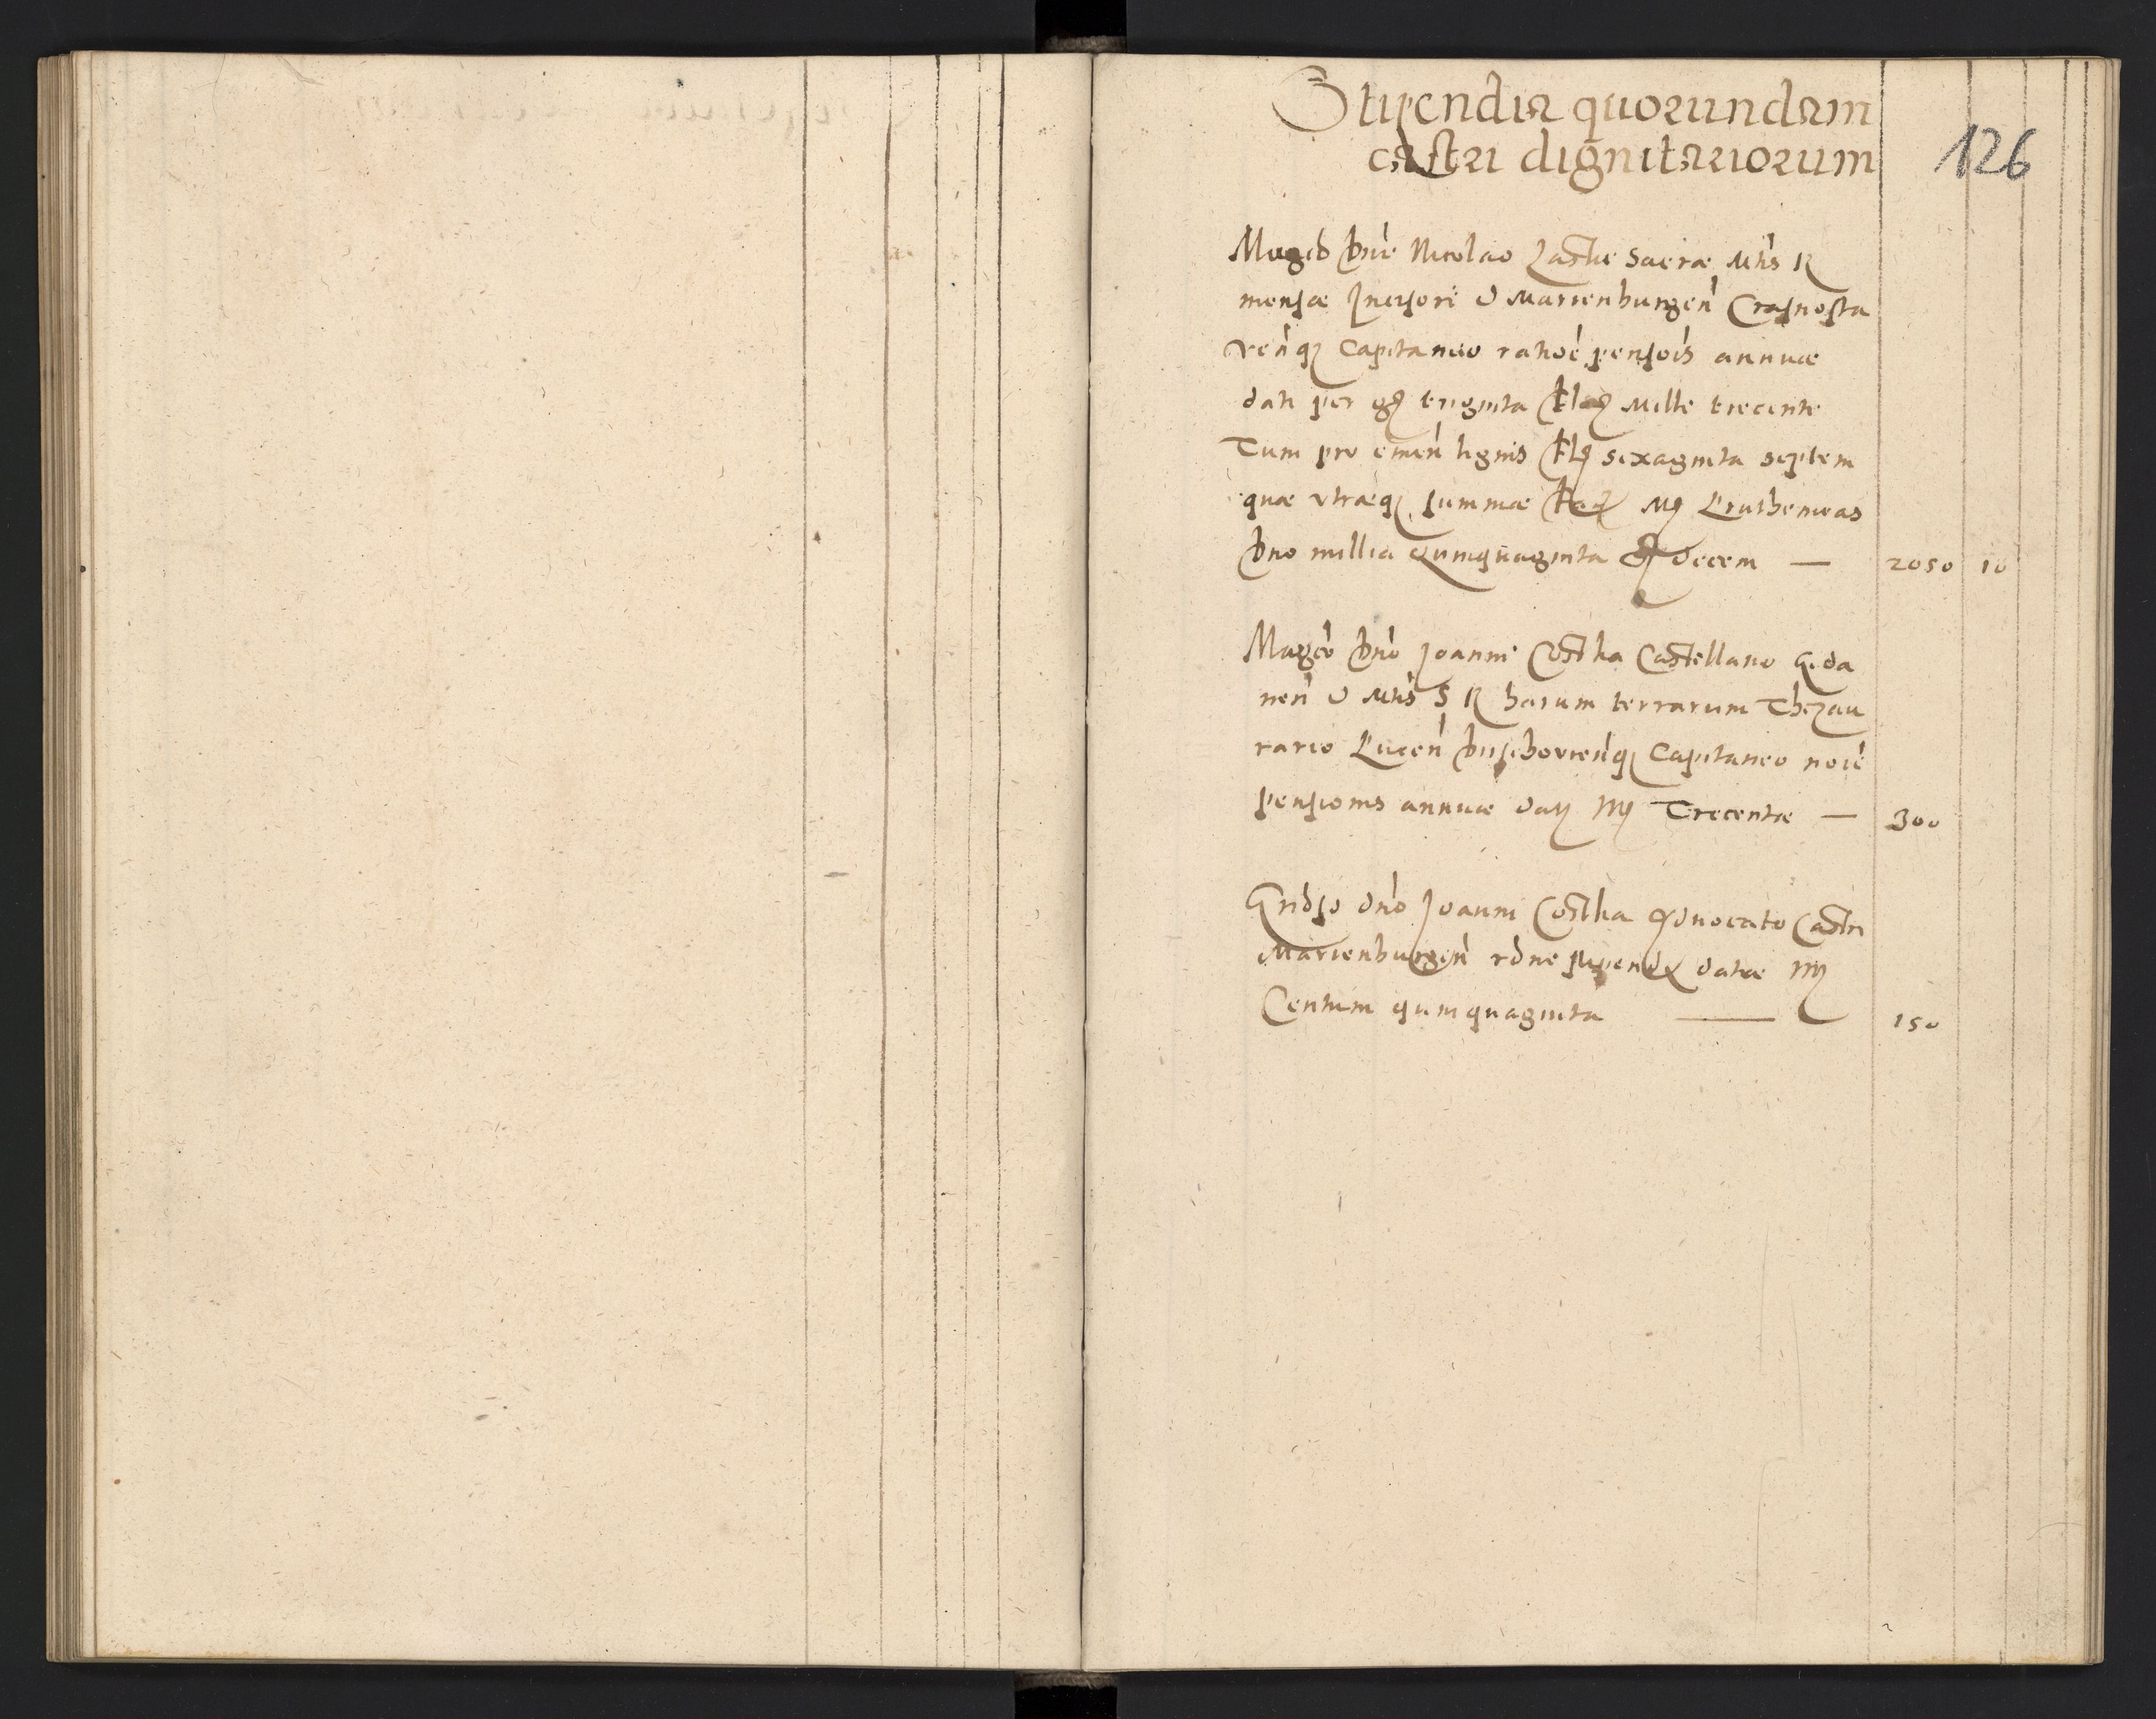 Stipendia quorundam
castri dignitariorum
126
Mageo Dno Nicolao Laskie Sacræ Mtis R
mensæ Incisori & Marienburgen Crasnosta
venq Capitaneo ratioe pensois annuæ
dati per gr triginta Tlr Mille trecenti
Tum pro emen lignis Tlr sexaginta septem
quæ vtræq summæ M Pruthenicas
Duo millia Quinquaginta gr decem — 2050 10
Mageo Dno Joanni Costka Castellano Geda
nen & Mtis S R harum terrarum Thezau
rario Pucen Dirschovienq Capitaneo noie
pensionis annuæ daty M Trecentæ — 300
Gndso dno Joanni Costka Aduocato Castri
Marienburgen rone stipendy datæ M
Centum quinquaginta — 150